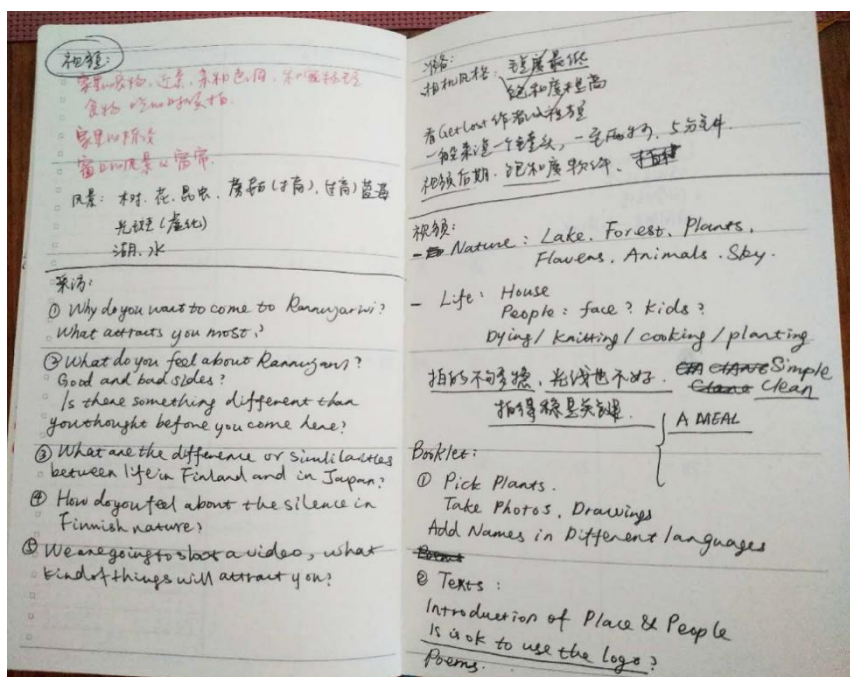 视频:
家里的食物,近景,亲和色调,和
食物 吃的时候拍.
家里的陈设
窗口的风景&窗帘.
风景: 树.花.昆虫. 蘑菇(才商),(过商)蓝莓
光斑(虚化)
湖.水
采访:
① Why do you want to come to Rannugarwi?
What attracts you most?
② What do you feel about Rannugarvi?
Good and bad sides?
Is there something different than
you thought before you come here?
③ What are the difference or similarities
between life in Finland and in Japan?
④ How do you feel about the silence in
Finnish nature?
⑤ We are going to shoot a video, what
kind of things will attract you?
准备:
相机风格: 锐度最低
饱和度提高
看 Get Lost 作者
一般来说一个 5分文件.
视频后期. 饱和度
视频:
- Nature: Lake. Forest. Plants.
Flowers. Animals. Sky.
- Life: House
People: face? kids?
Dying/knitting/cooking/planting
拍的不够多, 光线也不好. Simple
Clean
拍得稳是关键. A MEAL
Booklet:
① Pick Plants.
Take Photos. Drawings
Add Names in Different languages
Poems
② Texts:
Introduction of Place & People
Is is ok to use the logo?
Poems.